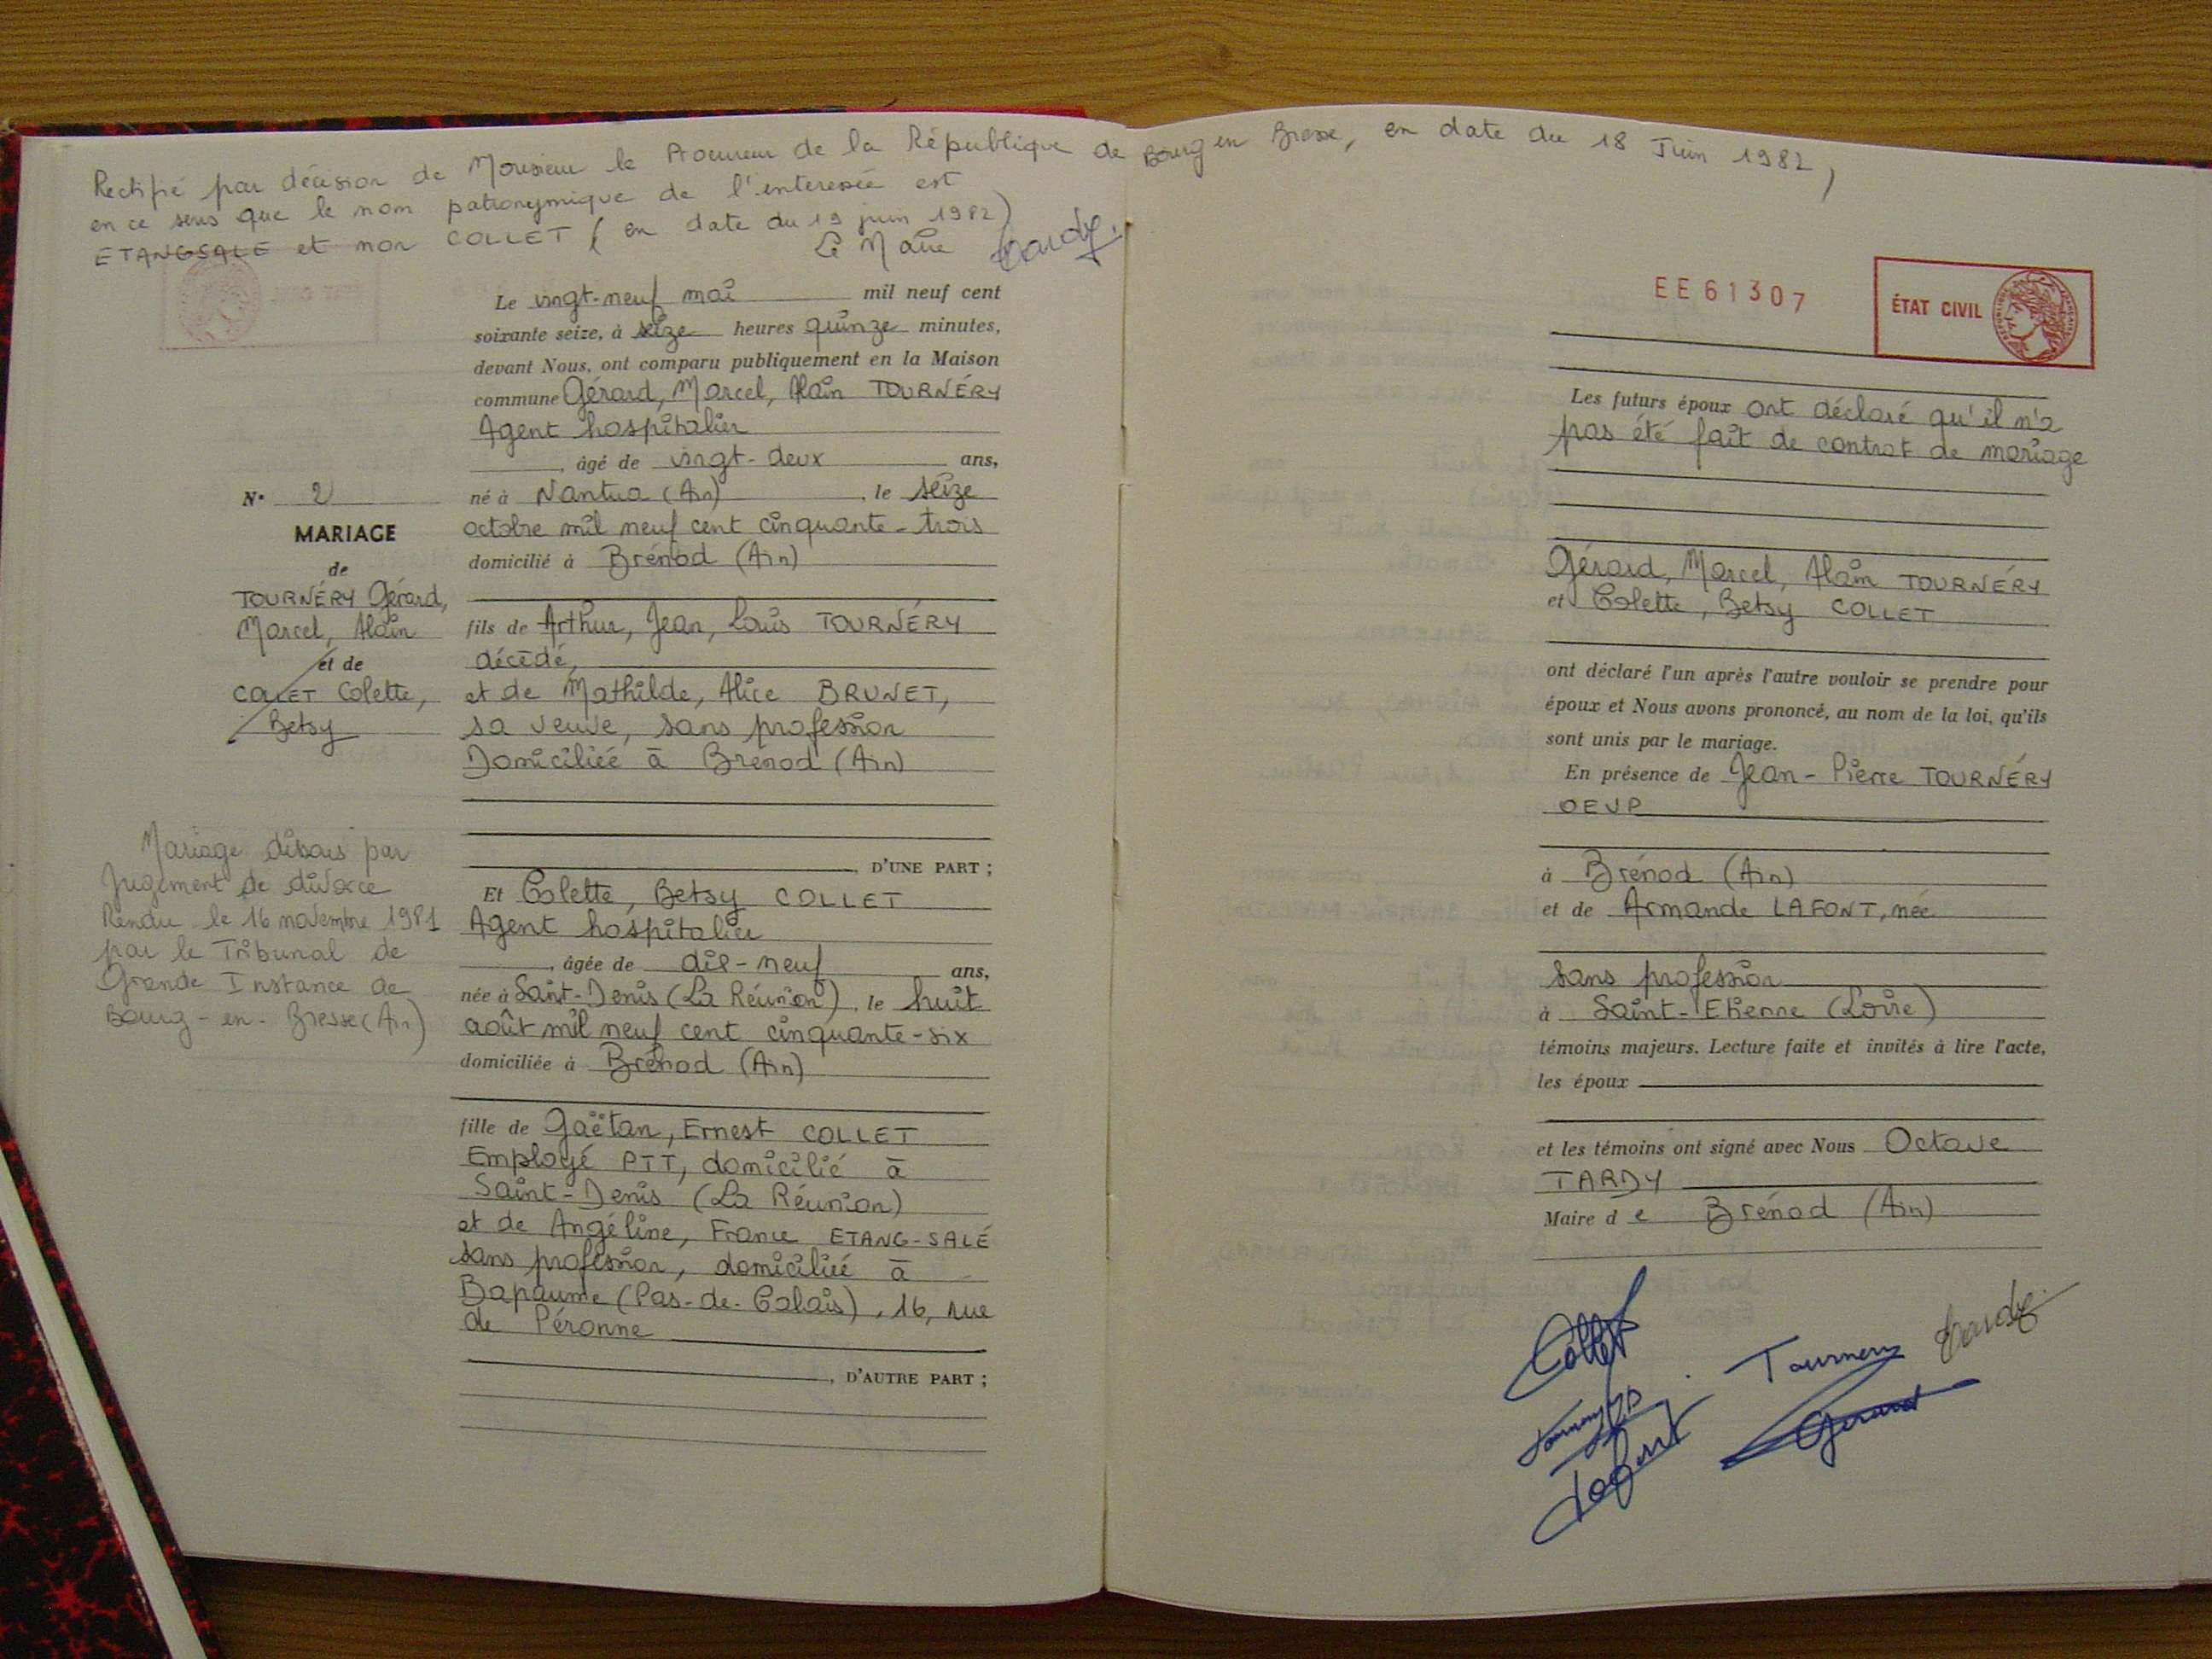 Rectifié par décision de Monsieur le Procureur de la République de Bourg en Bresse, en date du 18 Juin 1982,
en ce sens que le nom patronymique de l'interessée est
ETANGSALE et non COLLET (en date du 19 juin 1982)
Le Maire Tardy
Le vingt-neuf mai mil neuf cent
soixante seize, à seize heures quinze minutes,
devant Nous, ont comparu publiquement en la Maison
commune Gérard, Marcel, Alain TOURNÉRY
Agent hospitalier
, âgé de vingt-deux ans,
né à Nantua (Ain), le seize
octobre mil neuf cent cinquante-trois
domicilié à Brénod (Ain)
fils de Arthur, Jean, Louis TOURNÉRY
décédé,
et de Mathilde, Alice BRUNET,
sa veuve, sans profession
Domiciliée à Brénod (Ain)
, D'UNE PART ;
N° 2
MARIAGE
de
TOURNÉRY Gérard,
Marcel, Alain
et de
COLLET Colette,
Betsy
Mariage dissous par
Jugement de divorce
Rendu le 16 novembre 1981
par le Tribunal de
Grande Instance de
Bourg-en-Bresse (Ain)
Et Colette, Betsy COLLET
Agent hospitalier
, âgée de dix-neuf ans,
née à Saint-Denis (La Réunion), le huit
août mil neuf cent cinquante-six
domiciliée à Brénod (Ain)
fille de Gaëtan, Ernest COLLET
Employé PTT, domicilié à
Saint-Denis (La Réunion)
et de Angéline, France ETANG-SALÉ
sans profession, domiciliée à
Bapaume (Pas-de-Calais), 16, rue
de Péronne
, D'AUTRE PART ;
EE61307
ÉTAT CIVIL
Les futurs époux ont déclaré qu'il n'a
pas été fait de contrat de mariage
Gérard, Marcel, Alain TOURNÉRY
et Colette, Betsy COLLET
ont déclaré l'un après l'autre vouloir se prendre pour
époux et Nous avons prononcé, au nom de la loi, qu'ils
sont unis par le mariage.
En présence de Jean-Pierre TOURNÉRY
OEVP
à Brénod (Ain)
et de Armande LAFONT, née
sans profession
à Saint-Etienne (Loire)
témoins majeurs. Lecture faite et invités à lire l'acte,
les époux
et les témoins ont signé avec Nous Octave
TARDY
Maire de Brénod (Ain)
Collet
Tournery Tardy
Gérard
Lafont